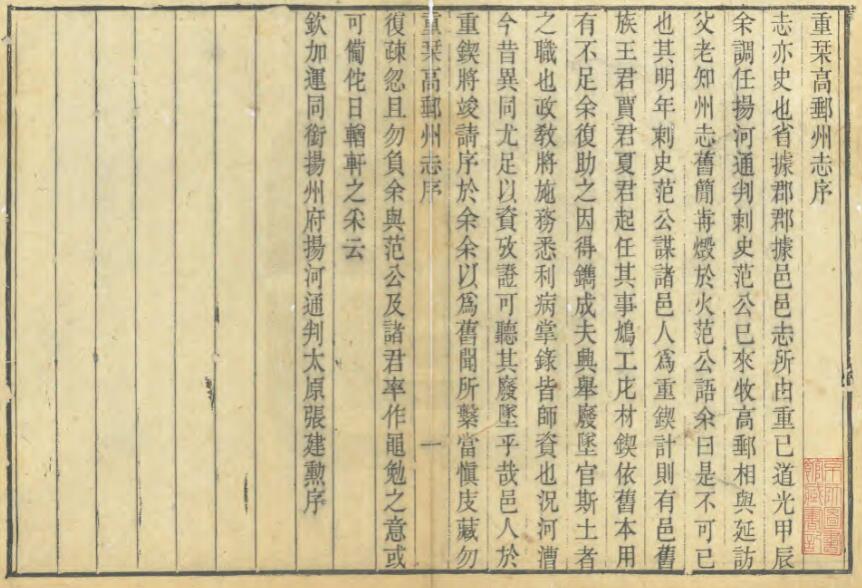 重栞高郵州志序
志亦史也省據郡郡據邑邑志所由重已道光甲辰
余調任揚河通判刺史范公已來牧高郵相與延訪
父老知州志舊簡毐燬於火范公語余曰是不可已
也其明年刺史范公謀諸邑人爲重鍥計則有邑舊
族王君賈君夏君起任其事鳩工庀材鍥依舊本用
有不足余復助之因得鐫成夫典舉廢墜官斯土者
之職也政敎將施務悉利病掌錄皆師資也況河漕
今昔異同尤足以資攷證可聽其廢墜乎哉邑人於
重鍥將竣請序於余余以爲舊聞所繫當愼庋藏勿
重栞高郵州志序
一
復疎忽且勿負余與范公及諸君率作黽勉之意或
可備佗日輶軒之采云
欽加運同銜揚州府揚河通判太原張建勲序